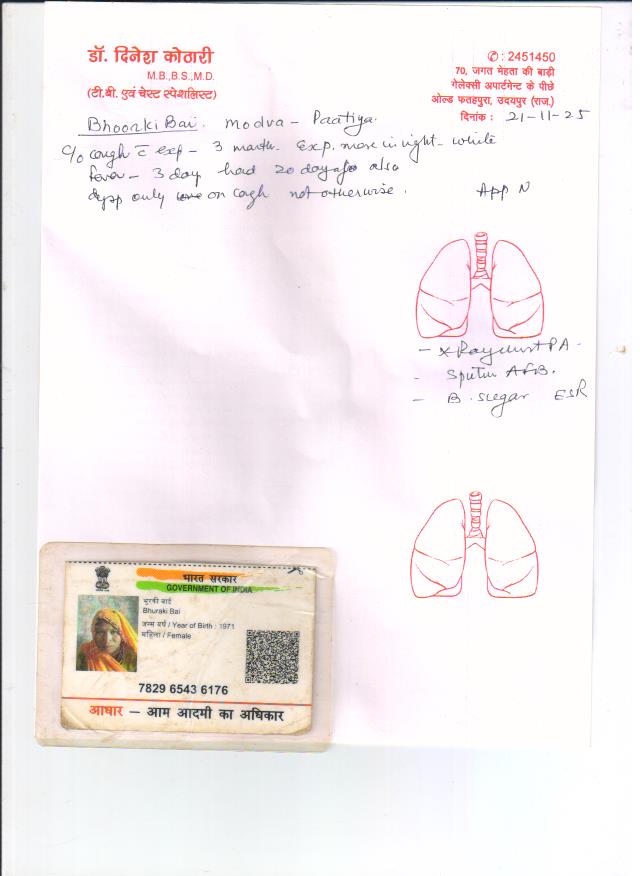 डॉ. दिनेश कोठारी
M.B.,B.S.,M.D.
(टी.बी. एवं चेस्ट स्पेशलिस्ट)
✆ : 2451450
70, जगत मेहता की बाड़ी
गेलेक्सी अपार्टमेन्ट के पीछे
ओल्ड फतहपुरा, उदयपुर (राज.)
दिनांक : 21-11-25
Bhoorki Bai. Modva - Paatiya.
C/o cough c̄ exp - 3 month. Exp. more in night - white
fever - 3 day had 20 day ago also
dysp only on cogh not otherwise.
App N
- X Ray chest PA -
- Sputum AFB.
- B. sugar ESR
भारत सरकार
GOVERNMENT OF INDIA
भुरकी बाई
Bhuraki Bai
जन्म वर्ष / Year of Birth : 1971
महिला / Female
7829 6543 6176
आधार – आम आदमी का अधिकार